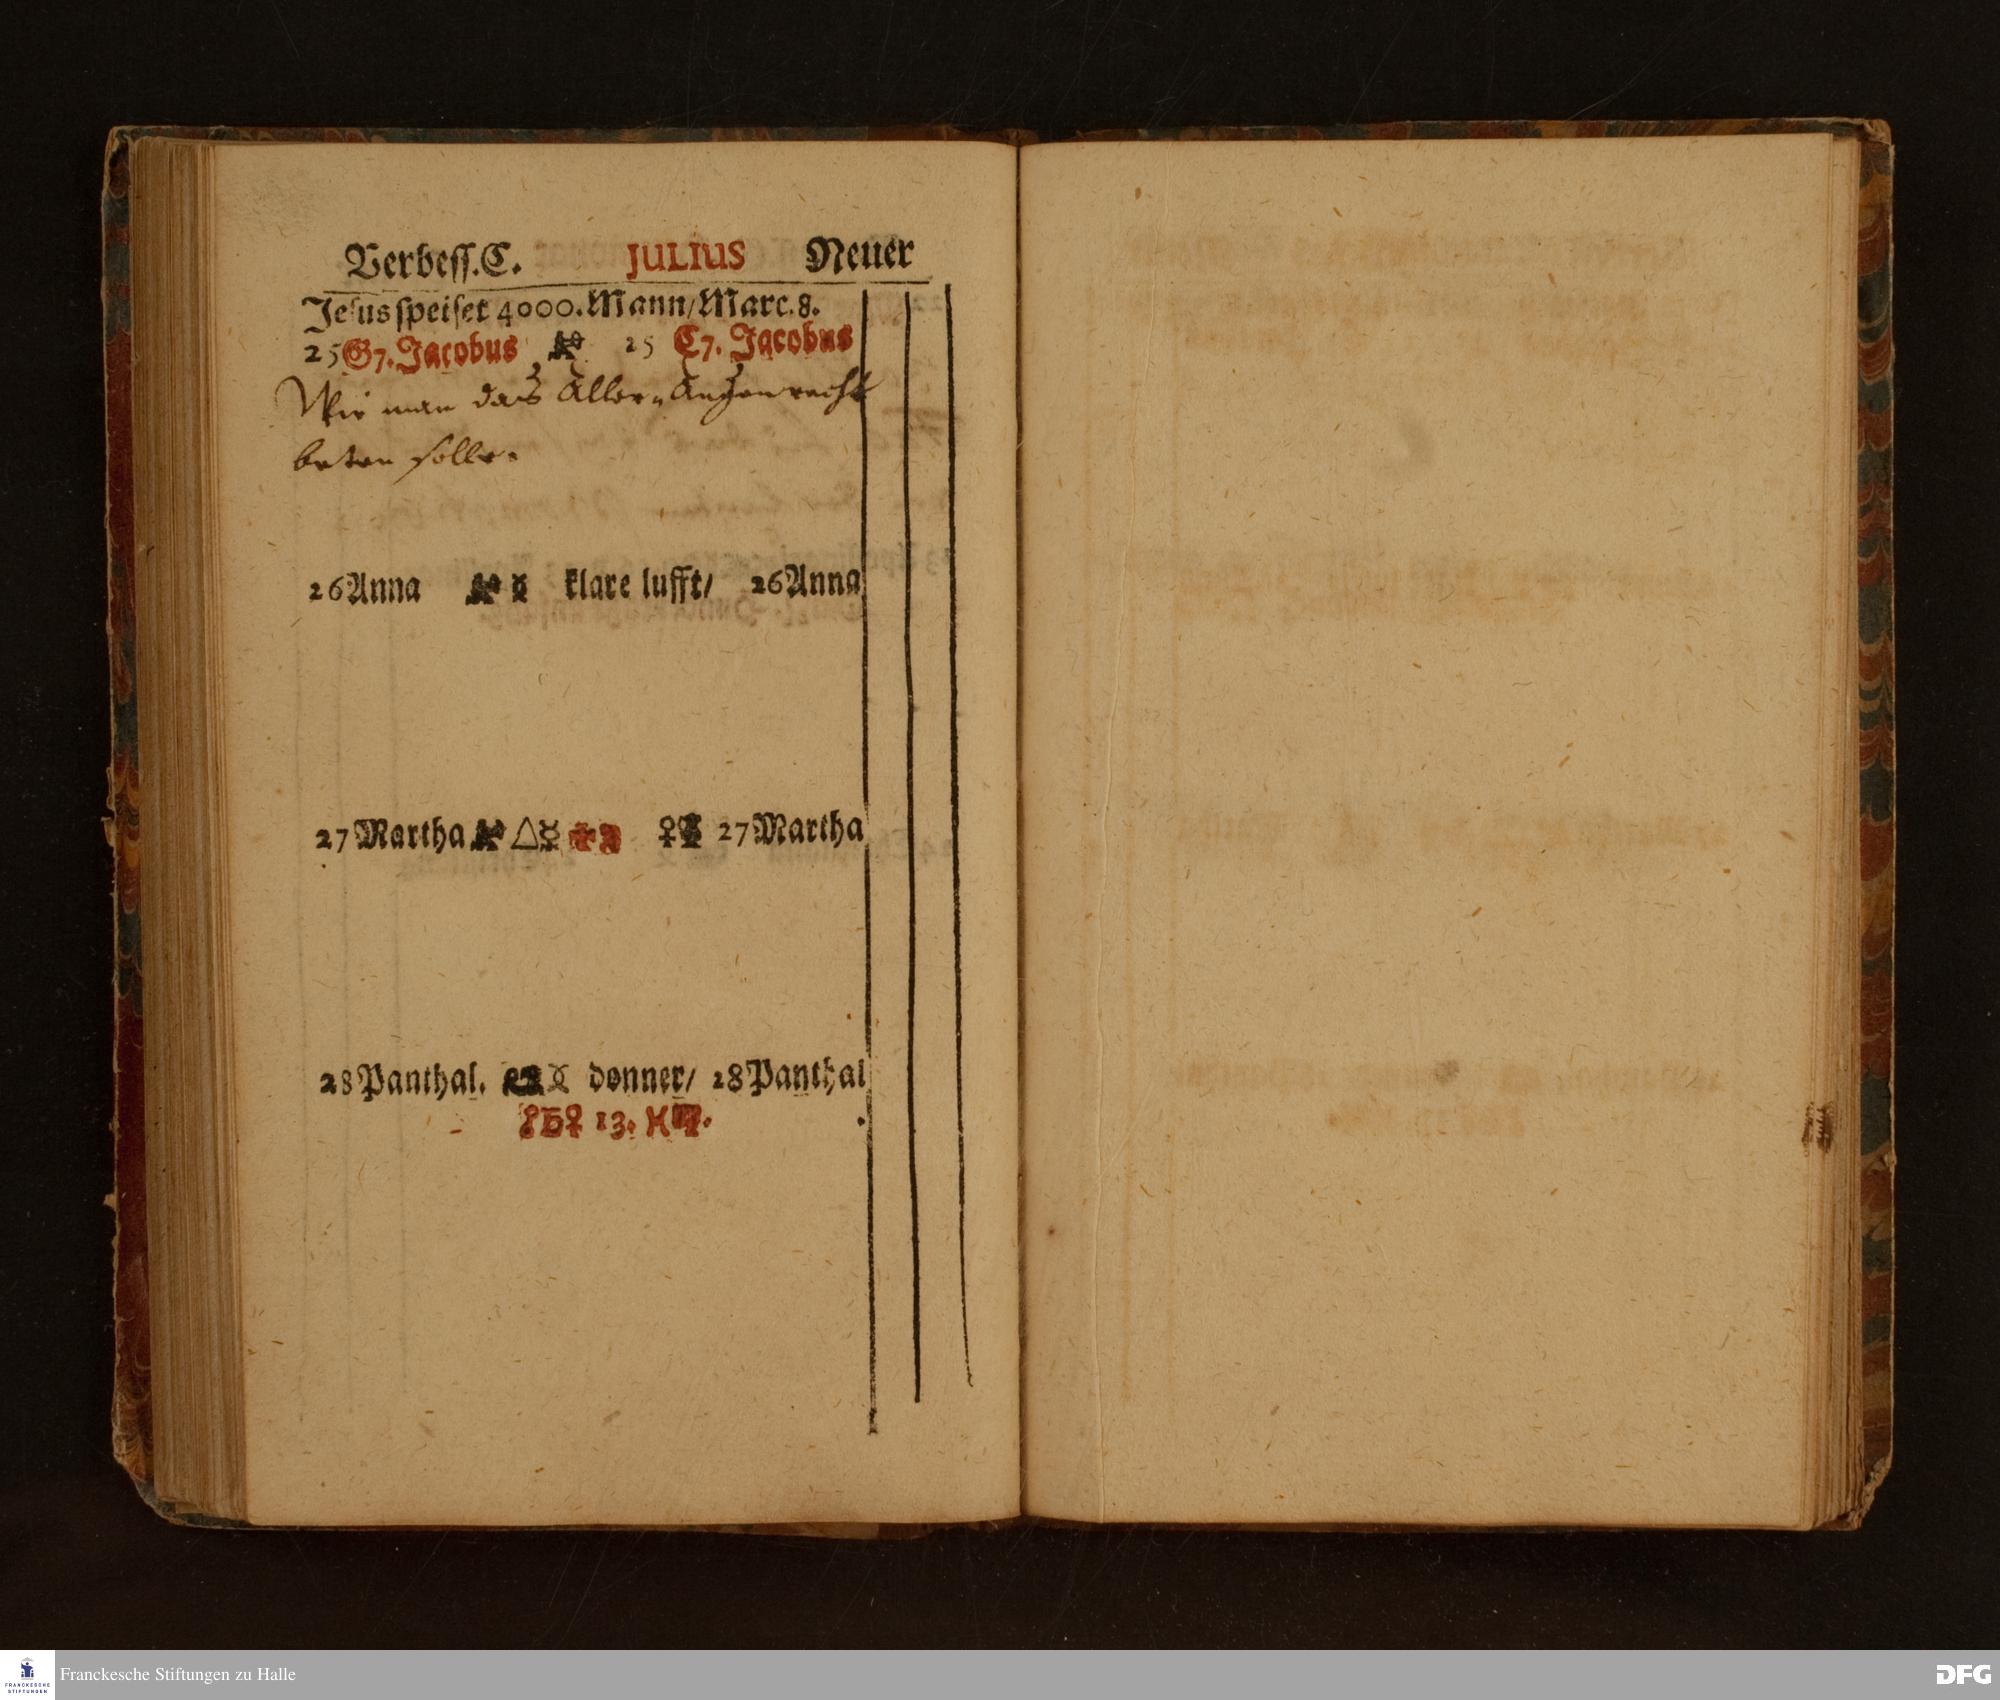 Verbeſſ. C. JULIUS Neuer
Jeſus ſpeiſet 4000. Mann/ Marc. 8.
25 G7. Jacobus 25 C7. Jacobus
Wie man das recht
beten solle.
26 Anna ☿ klare lufft/ 26 Anna
27 Martha △☿ ♀ 27 Martha
28 Panthal. donner/ 28 Panthal
☍♄♀ 13. .
Franckesche Stiftungen zu Halle
FRANCKESCHE
STIFTUNGEN
DFG